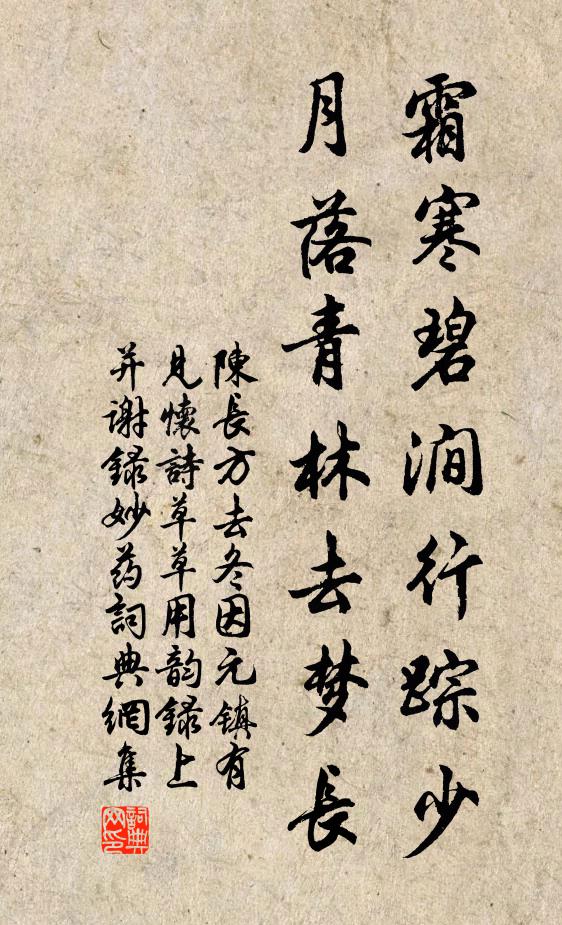 霜寒碧澗行踪少
月落青林去梦長
陳長方去冬因元鎮有
見懷詩草草用韵錄上
并谢錄妙药詞典網集
詞典网印